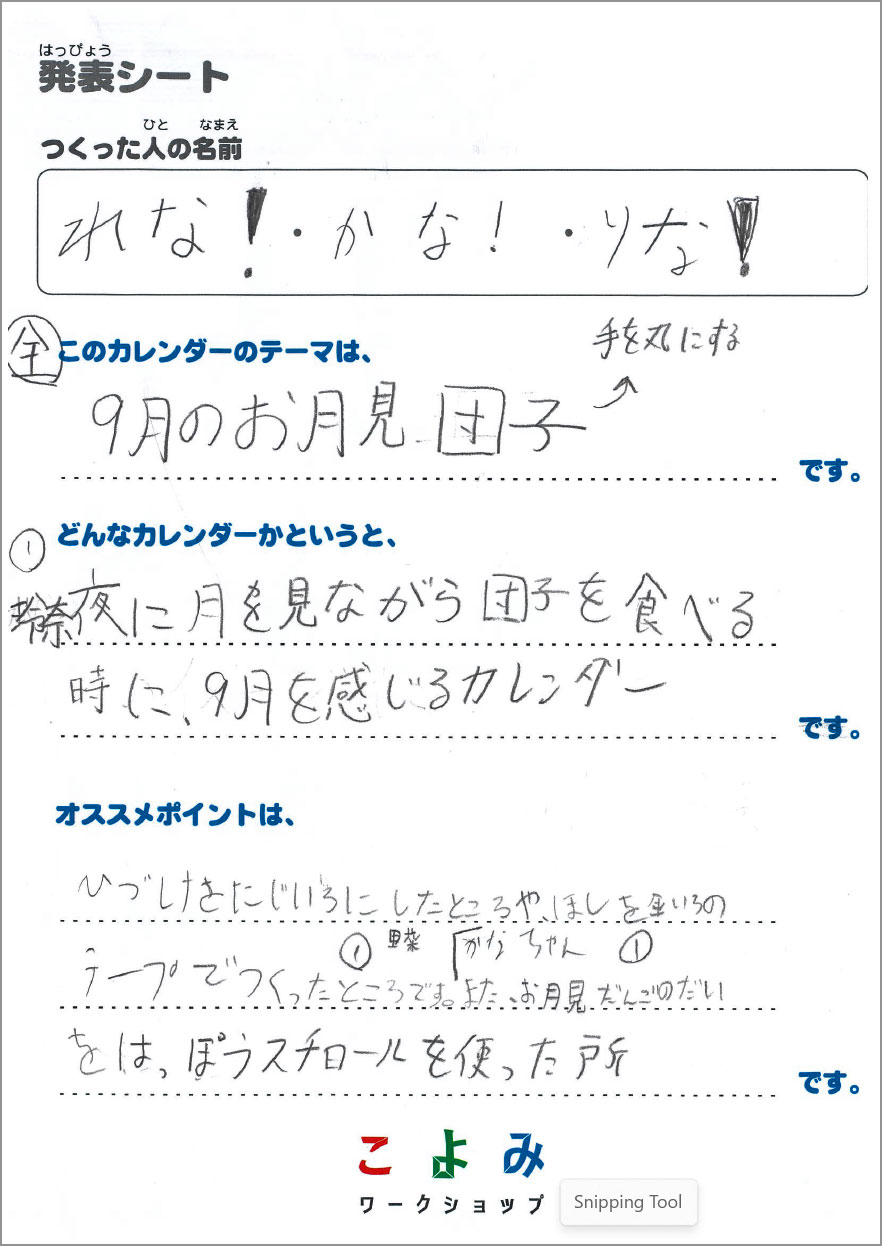 はっぴょう
発表シート
ひと なまえ
つくった人の名前
れな!・かな!・りな!
全 このカレンダーのテーマは、
手を丸にする
9月のお月見団子
です。
① どんなカレンダーかというと、
玲奈 夜に月を見ながら団子を食べる
時に、9月を感じるカレンダー
です。
オススメポイントは、
ひづけをにじいろにしたところや、ほしを金いろの
① 里菜 「かなちゃん ①
テープでつくったところです。また、お月見だんごのだい
をはっぽうスチロールを使った所
です。
こよみ
ワークショップ
Snipping Tool